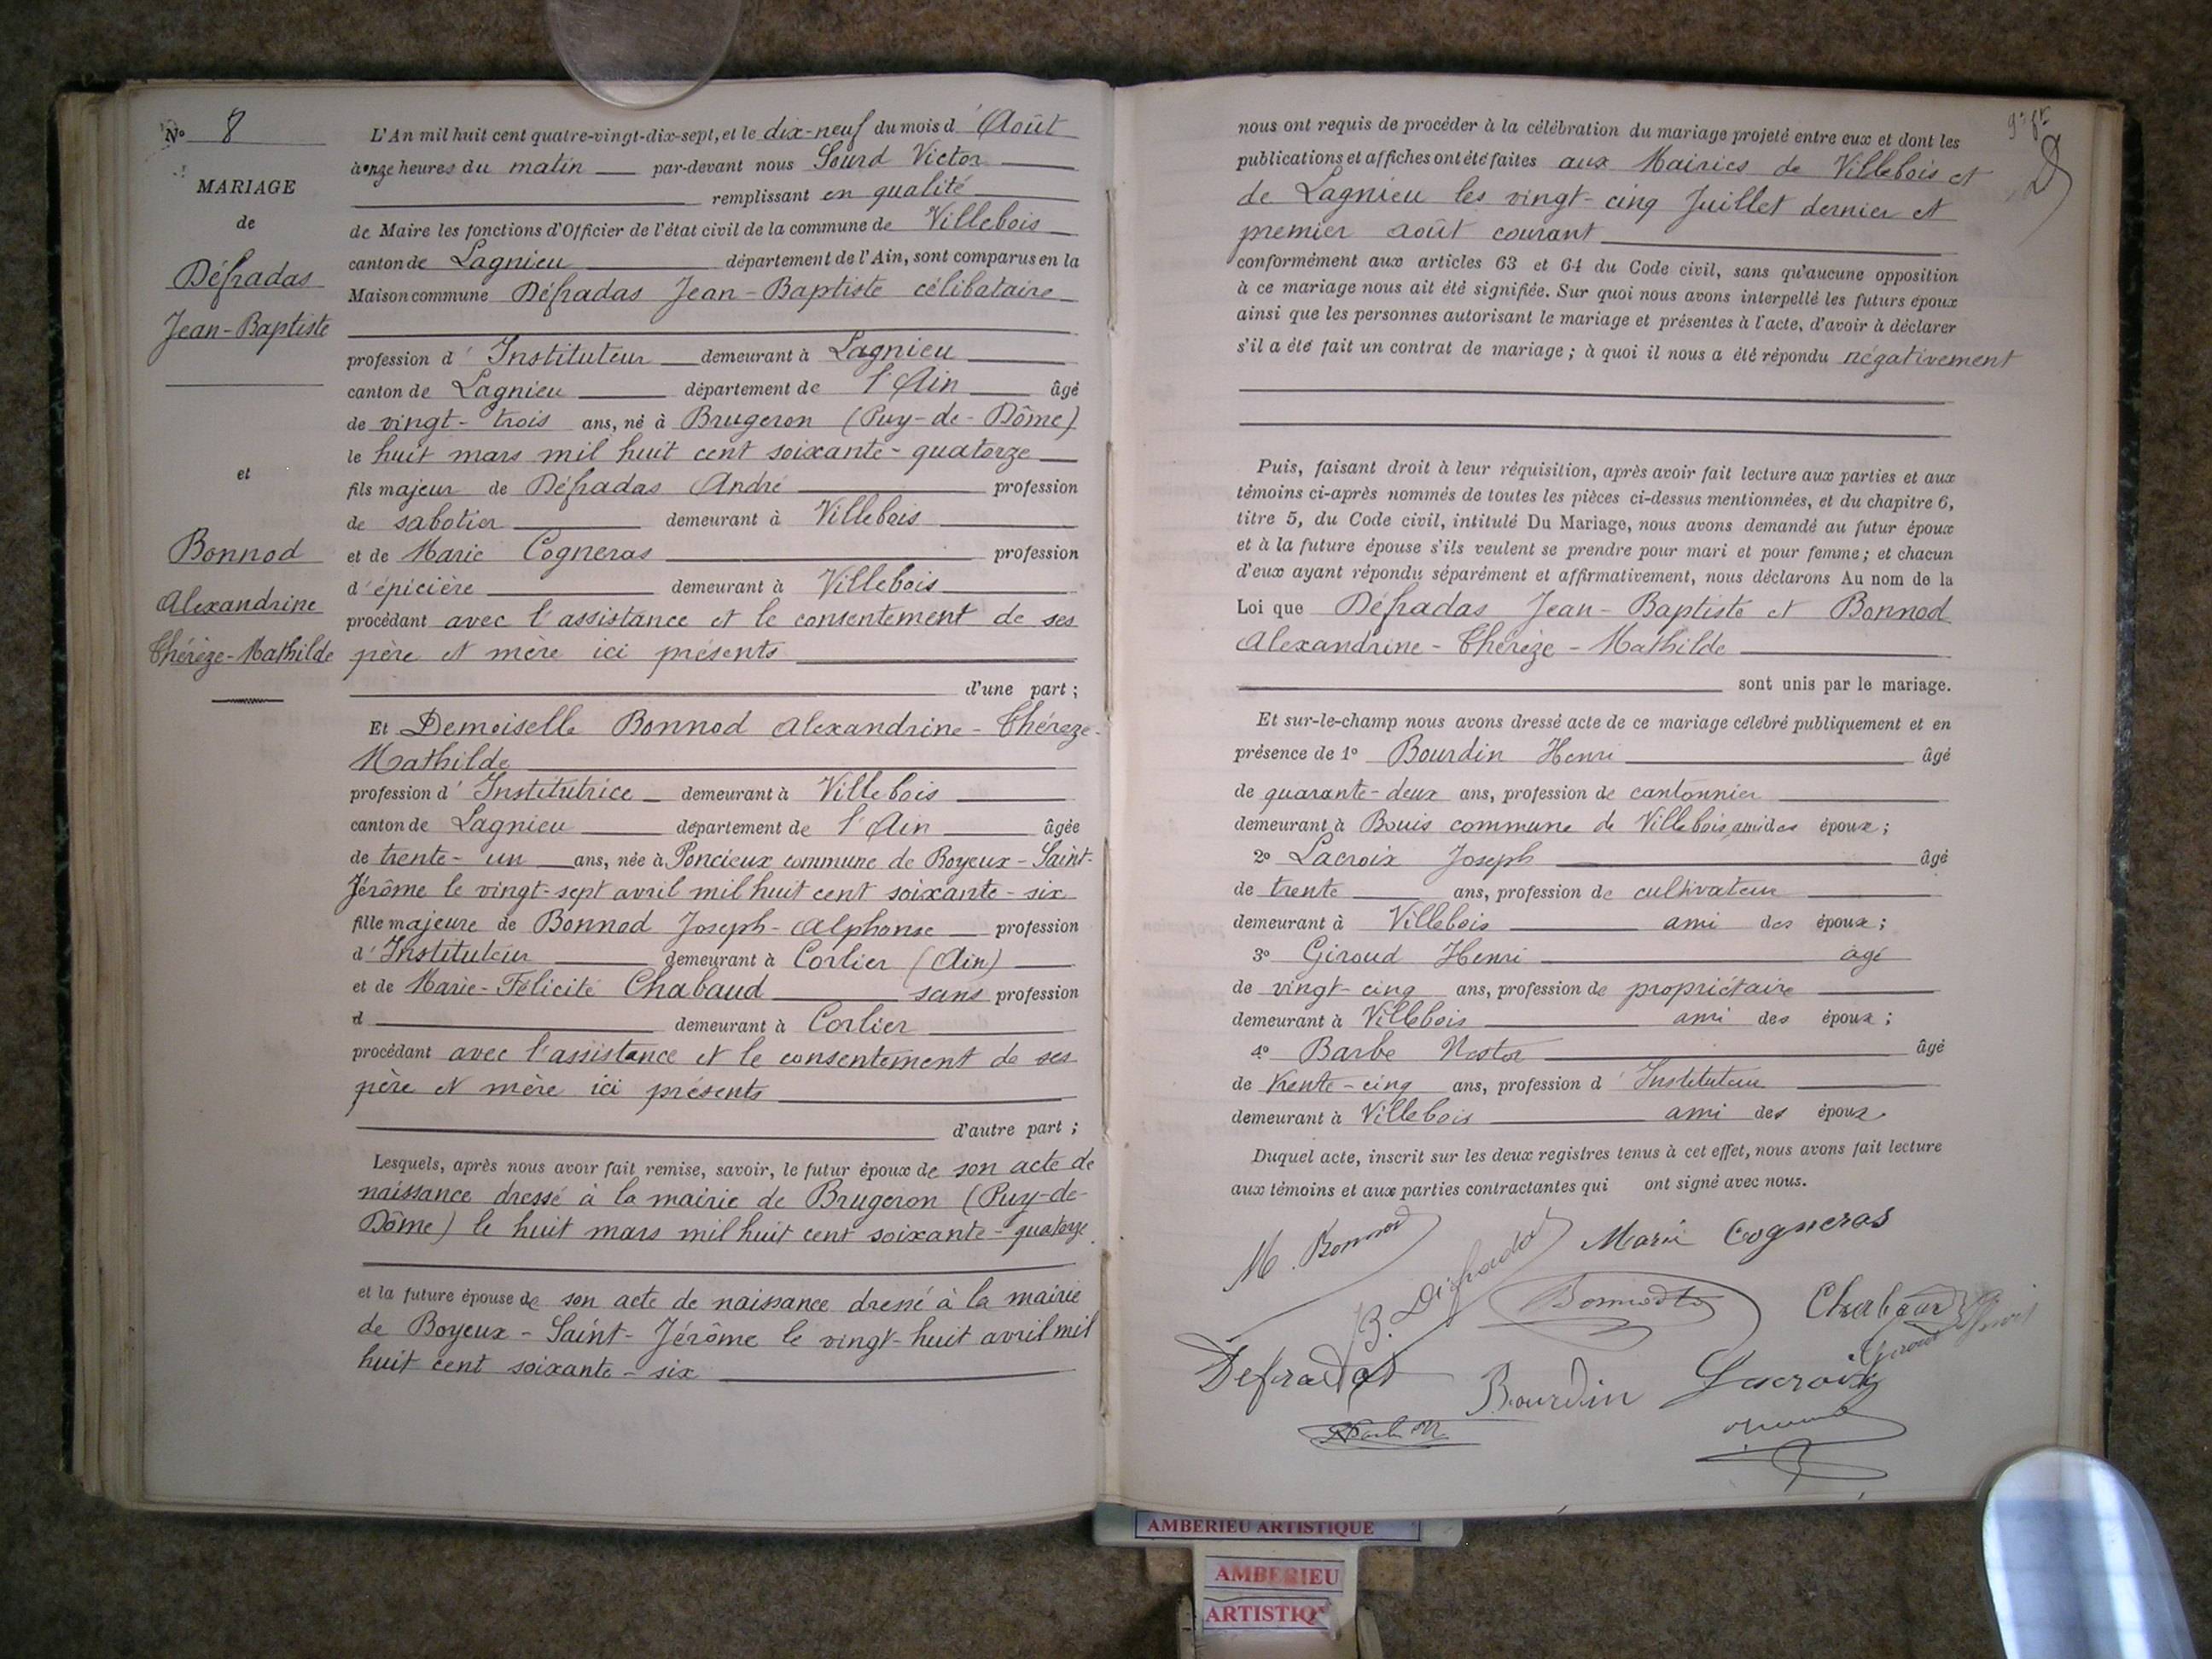 N° 8
MARIAGE
de
Défradas
Jean-Baptiste
et
Bonnod
Alexandrine
Thérèze-Mathilde
L'An mil huit cent quatre-vingt-dix-sept, et le dix-neuf du mois d'Août
à onze heures du matin par-devant nous Sourd Victor
remplissant en qualité
de Maire les fonctions d'Officier de l'état civil de la commune de Villebois
canton de Lagnieu département de l'Ain, sont comparus en la
Maison commune Défradas Jean-Baptiste célibataire
profession d'Instituteur demeurant à Lagnieu
canton de Lagnieu département de l'Ain âgé
de vingt-trois ans, né à Brugeron (Puy-de-Dôme)
le huit mars mil huit cent soixante-quatorze
fils majeur de Défradas André profession
de sabotier demeurant à Villebois
et de Marie Cogneras profession
d'épicière demeurant à Villebois
procédant avec l'assistance et le consentement de ses
père et mère ici présents
d'une part ;
Et Demoiselle Bonnod Alexandrine-Thérèze-
Mathilde
profession d'Institutrice demeurant à Villebois
canton de Lagnieu département de l'Ain âgée
de trente-un ans, née à Poncieux commune de Boyeux-Saint-
Jérôme le vingt-sept avril mil huit cent soixante-six
fille majeure de Bonnod Joseph-Alphonse profession
d'Instituteur demeurant à Corlier (Ain)
et de Marie-Félicité Chabaud sans profession
d demeurant à Corlier
procédant avec l'assistance et le consentement de ses
père et mère ici présents
d'autre part ;
Lesquels, après nous avoir fait remise, savoir, le futur époux de son acte de
naissance dressé à la mairie de Brugeron (Puy-de-
Dôme) le huit mars mil huit cent soixante-quatorze
et la future épouse de son acte de naissance dressé à la mairie
de Boyeux-Saint-Jérôme le vingt-huit avril mil
huit cent soixante-six
nous ont requis de procéder à la célébration du mariage projeté entre eux et dont les
publications et affiches ont été faites aux Mairies de Villebois et
de Lagnieu les vingt-cinq Juillet dernier et
premier août courant
conformément aux articles 63 et 64 du Code civil, sans qu'aucune opposition
à ce mariage nous ait été signifiée. Sur quoi nous avons interpellé les futurs époux
ainsi que les personnes autorisant le mariage et présentes à l'acte, d'avoir à déclarer
s'il a été fait un contrat de mariage ; à quoi il nous a été répondu négativement
Puis, faisant droit à leur réquisition, après avoir fait lecture aux parties et aux
témoins ci-après nommés de toutes les pièces ci-dessus mentionnées, et du chapitre 6,
titre 5, du Code civil, intitulé Du Mariage, nous avons demandé au futur époux
et à la future épouse s'ils veulent se prendre pour mari et pour femme ; et chacun
d'eux ayant répondu séparément et affirmativement, nous déclarons Au nom de la
Loi que Défradas Jean-Baptiste et Bonnod
Alexandrine-Thérèze-Mathilde
sont unis par le mariage.
Et sur-le-champ nous avons dressé acte de ce mariage célébré publiquement et en
présence de 1° Bourdin Henri âgé
de quarante-deux ans, profession de cantonnier
demeurant à Bouis commune de Villebois, ami des époux ;
2° Lacroix Joseph âgé
de trente ans, profession de cultivateur
demeurant à Villebois ami des époux ;
3° Giroud Henri âgé
de vingt-cinq ans, profession de propriétaire
demeurant à Villebois ami des époux ;
4° Barbe Nestor âgé
de trente-cinq ans, profession d'Instituteur
demeurant à Villebois ami des époux
Duquel acte, inscrit sur les deux registres tenus à cet effet, nous avons fait lecture
aux témoins et aux parties contractantes qui ont signé avec nous.
M. Bonnod
Marie Cogneras
Chabaud
Defradas
Bourdin
Lacroix
AMBERIEU ARTISTIQUE
AMBERIEU
ARTISTIQ